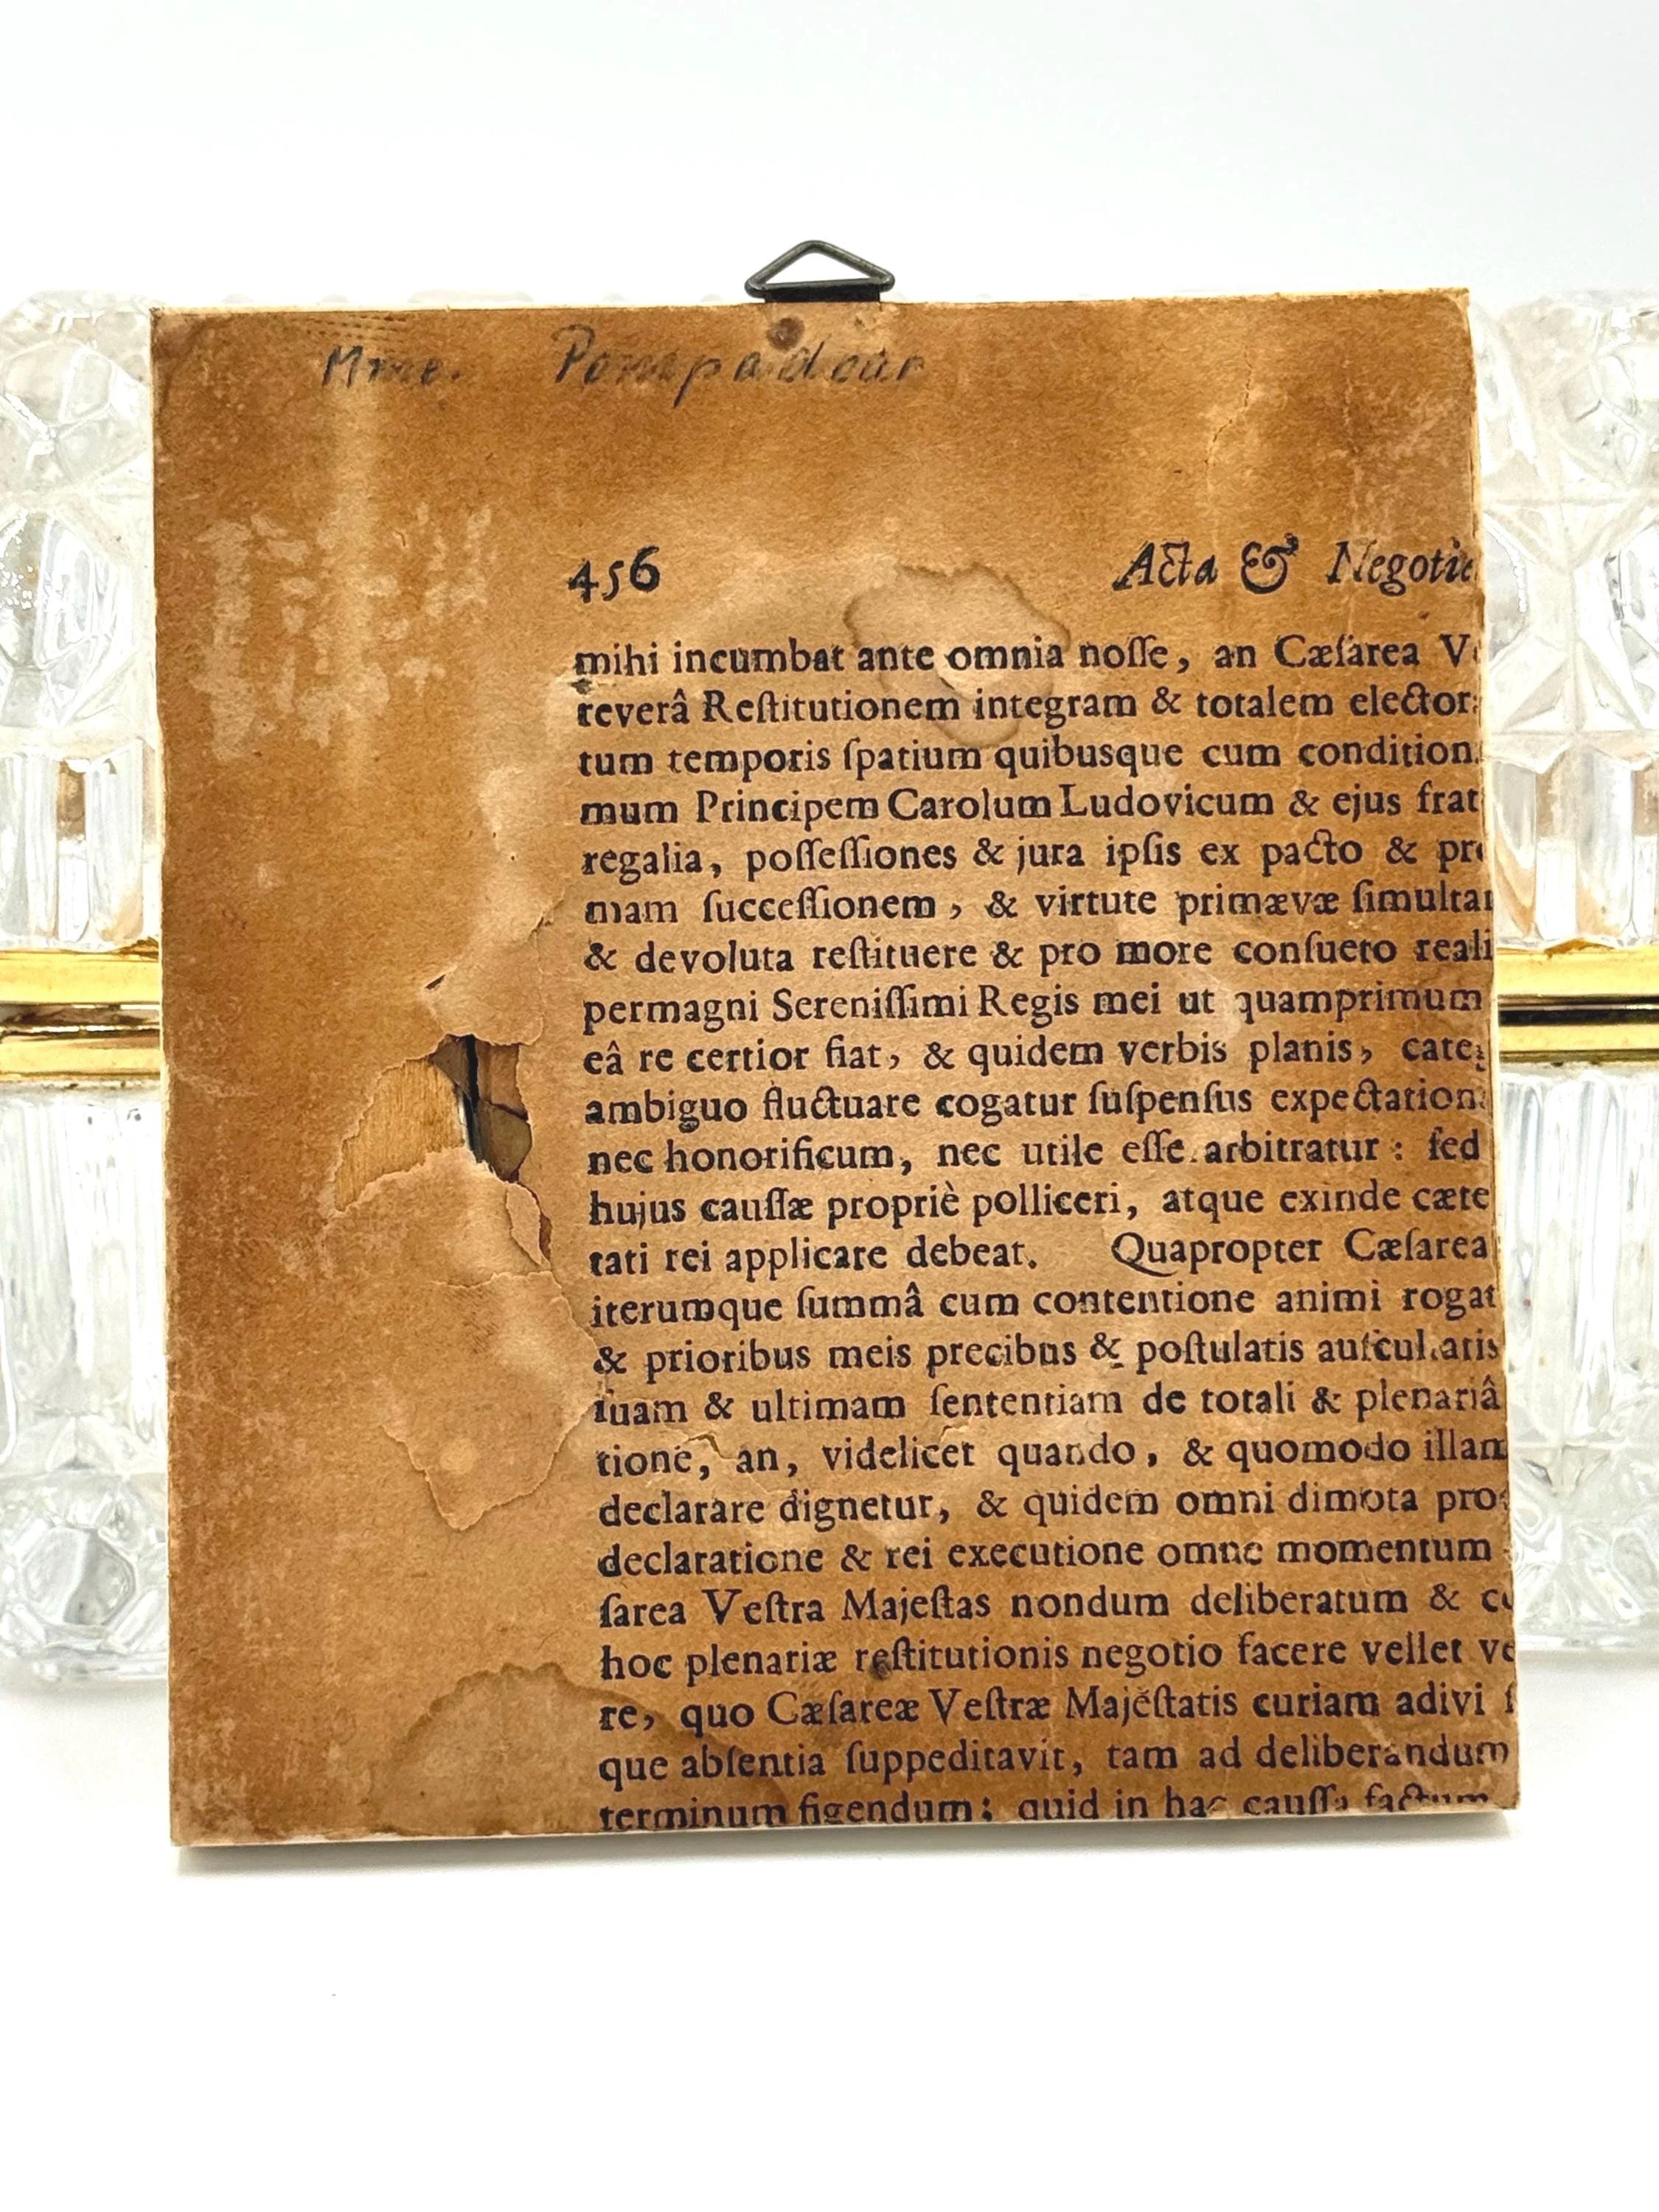 Mme. Pompadour
456 Acta & Negotia
mihi incumbat ante omnia noſſe, an Cæſarea V
reverâ Reſtitutionem integram & totalem elector
tum temporis ſpatium quibusque cum condition
mum Principem Carolum Ludovicum & ejus frat
regalia, poſſeſſiones & jura ipſis ex pacto & pr
mam ſucceſſionem, & virtute primævæ ſimulta
& devoluta reſtituere & pro more conſueto reali
permagni Sereniſſimi Regis mei ut quamprimum
eâ re certior fiat, & quidem verbis planis, cate
ambiguo fluctuare cogatur ſuſpenſus expectation
nec honorificum, nec utile eſſe arbitratur: ſed
hujus cauſſæ propriè polliceri, atque exinde cæte
tati rei applicare debeat. Quapropter Cæſarea
iterumque ſummâ cum contentione animi rogat
& prioribus meis precibus & poſtulatis auſcultatis
ſuam & ultimam ſententiam de totali & plenariâ
tione, an, videlicet quando, & quomodo illam
declarare dignetur, & quidem omni dimota pro
declaratione & rei executione omne momentum
ſarea Veſtra Majeſtas nondum deliberatum & co
hoc plenariæ reſtitutionis negotio facere vellet ve
re, quo Cæſareæ Veſtræ Majeſtatis curiam adivi ſ
que abſentia ſuppeditavit, tam ad deliberandum
terminum figendum: quid in hac cauſſa factum